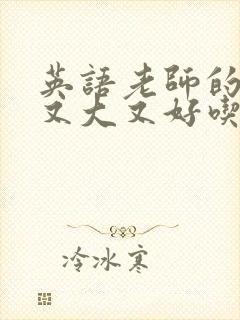 英語老師的
又大又好喫
冷冰寒